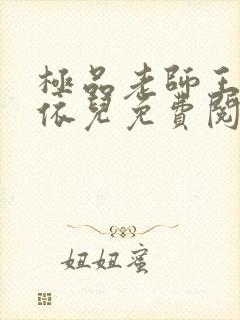 極品老師王
依兒免費閱
妞妞蜜